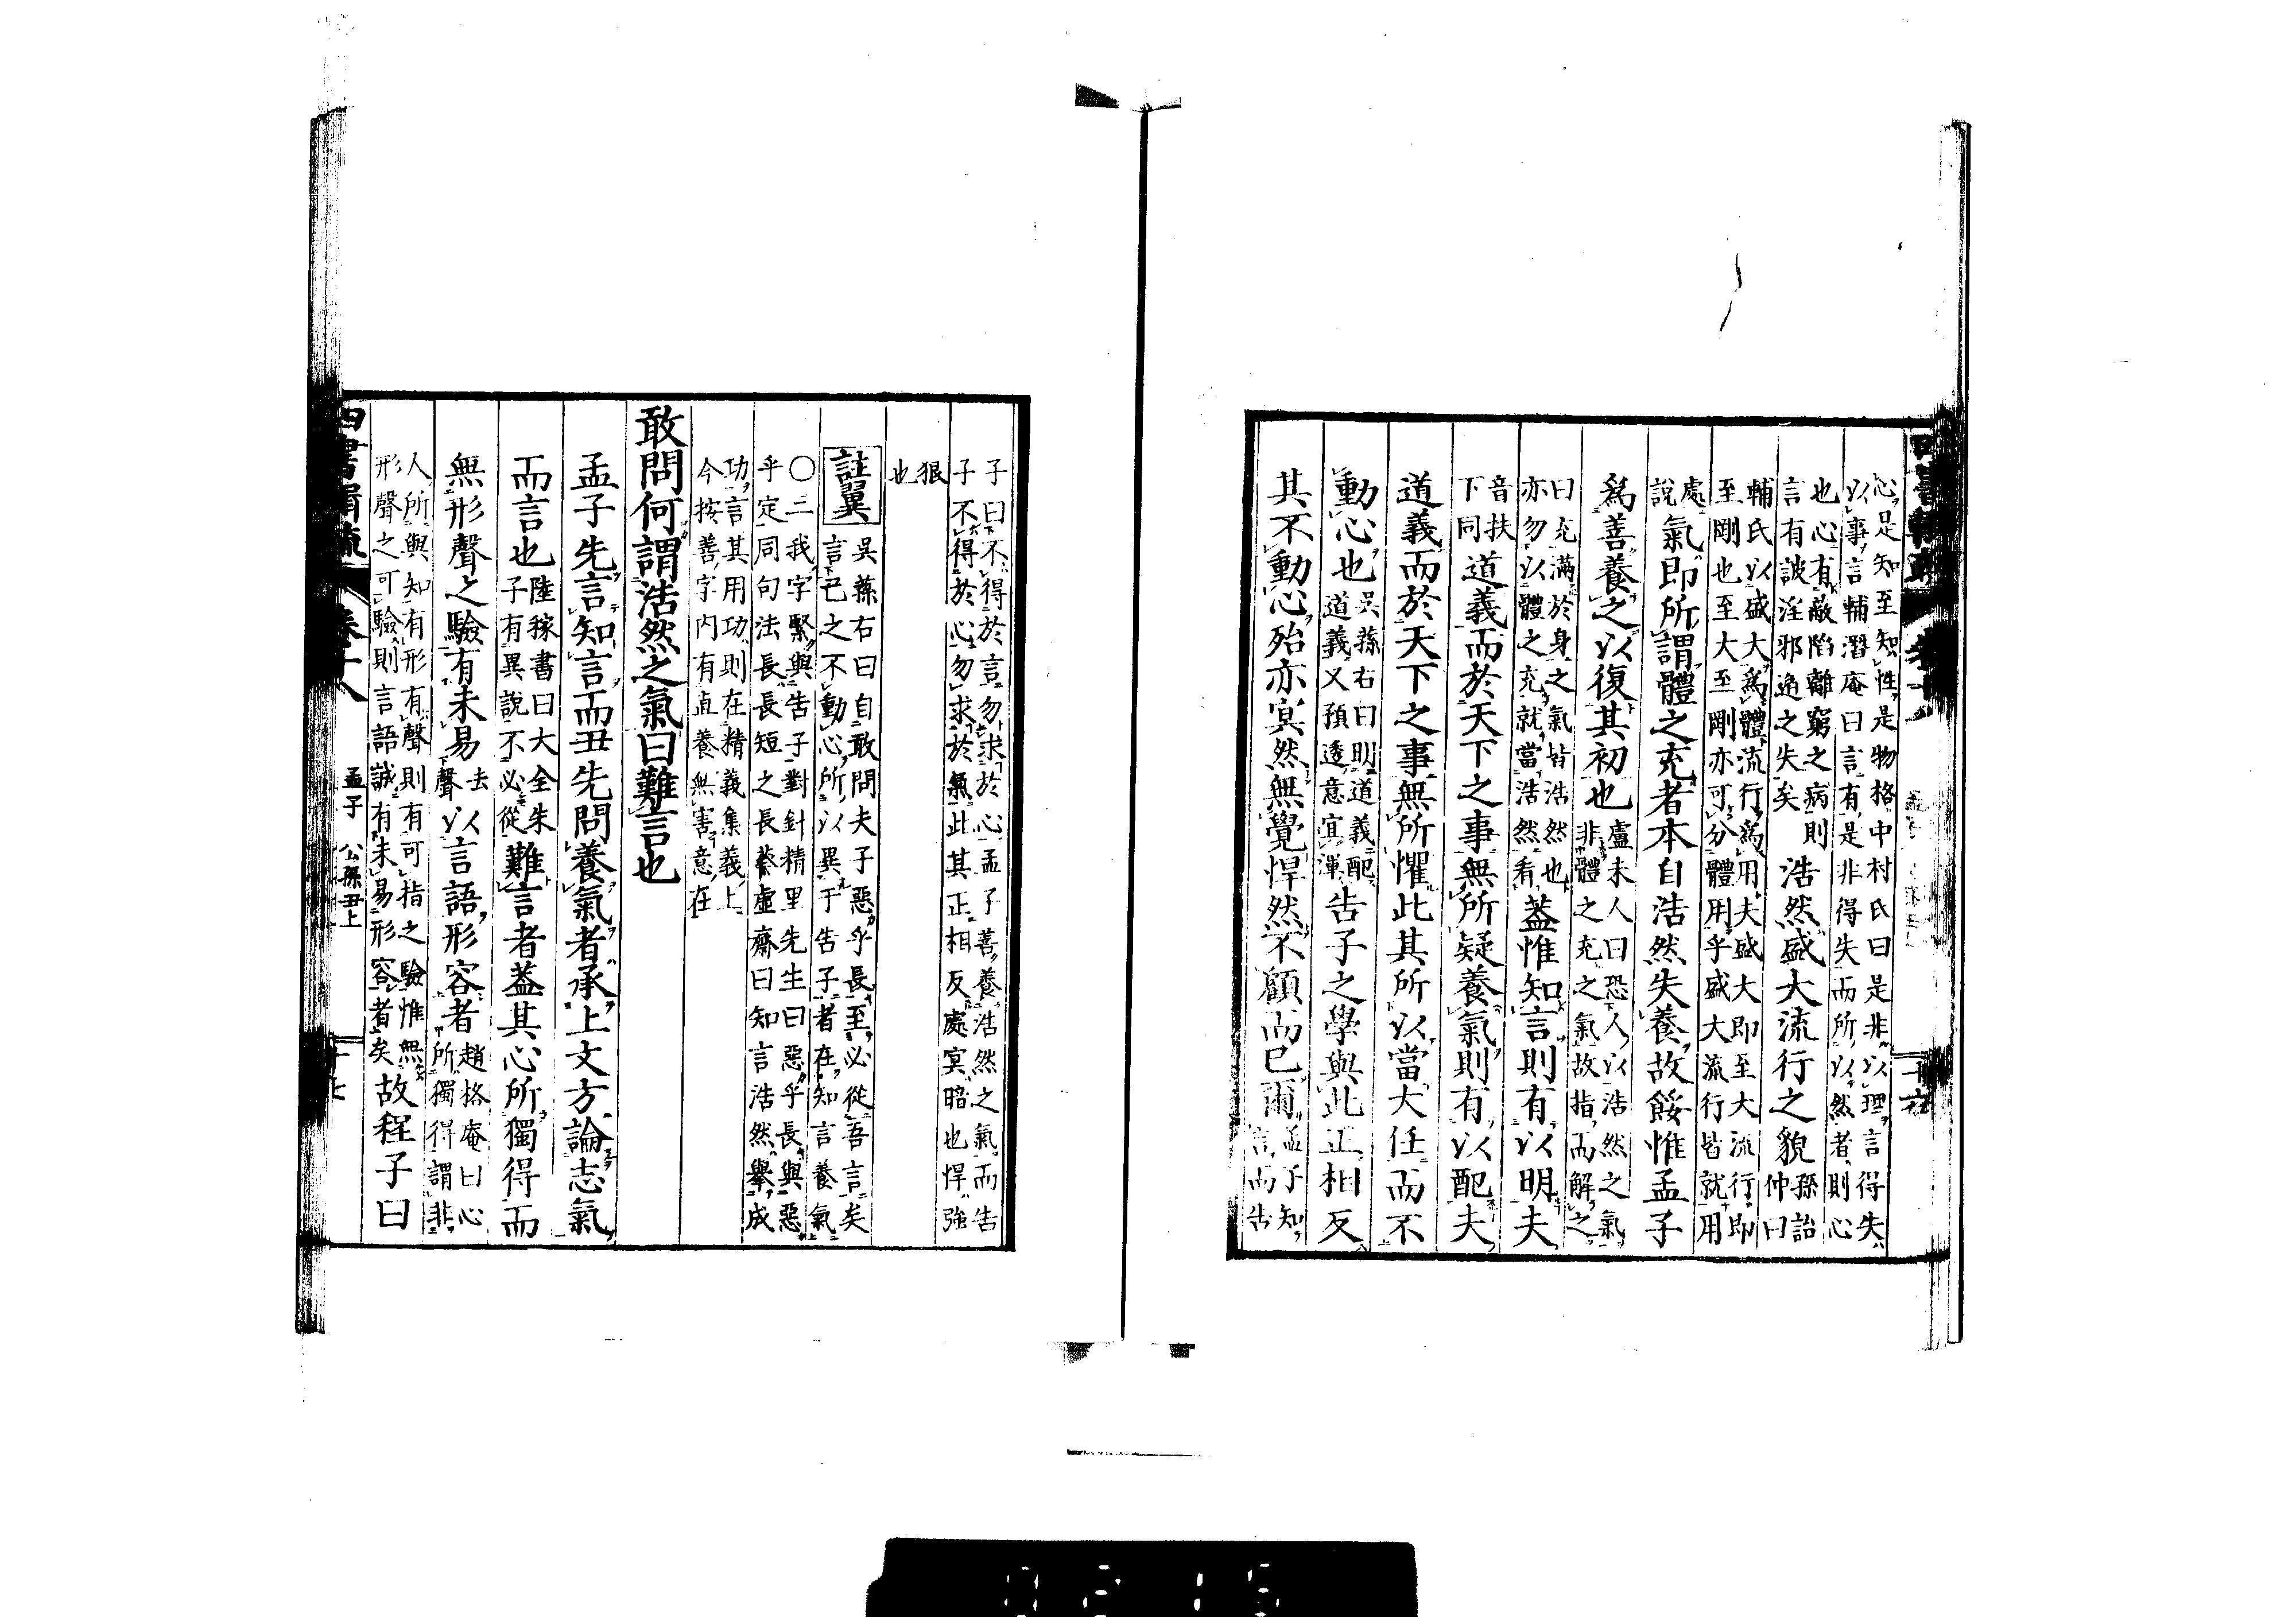 心是知至知性是物格中村氏曰是非以理言得失
以事言輔潛庵曰言有是非得失而所以然者則心
也心有蔽陷離窮之病則
言有詖淫邪遁之失矣
浩然盛大流行之貌
孫詒
仲曰
輔氏以盛大為體流行為用夫盛大即至大流行即
至剛也至大至剛亦可分體用乎盛大流行皆就用
處
說
氣即所謂體之充者本自浩然失養故餒惟孟子
爲善養之以復其初也
盧未人曰恐人以浩然之氣
非體之充之氣故指而解之
曰充滿於身之氣皆浩然也
亦勿以體之充就當浩然看
蓋惟知言則有以明夫
音扶
下同
道義而於天下之事無所疑養氣則有以配夫
道義而於天下之事無所懼此其所以當大任而不
動心也
吳蓀右曰明道義配
道義又預透意寘渾
告子之學與此正相反
其不動心殆亦冥然無覺悍然不顧而已爾
孟子知
言而告
子曰不得於言勿求於心孟子善養浩然之氣而告
子不得於心勿求於氣此其正相反處冥暗也悍強
狠
也
註翼
吳蓀右曰自敢問夫子惡乎長至必從吾言矣
言己之不動心所以異于告子者在知言養氣
○三我字緊與告子對針精里先生曰惡乎長與惡
乎定同句法長長短之長蔡虛齋曰知言浩然舉成
功言其用功則在精義集義上
今按善字內有直養無害意在
敢問何謂浩然之氣曰難言也
孟子先言知言而丑先問養氣者承上文方論志氣
而言也
陸稼書曰大全朱
子有異說不必從
難言者蓋其心所獨得而
無形聲之驗有未易
去
聲
以言語形容者
趙格庵曰心
所獨得謂非
人所與知有形有聲則有可指之驗惟無
形聲之可驗則言語誠有未易形容者矣
故程子曰
卷十八
孟子
公孫丑上
十七